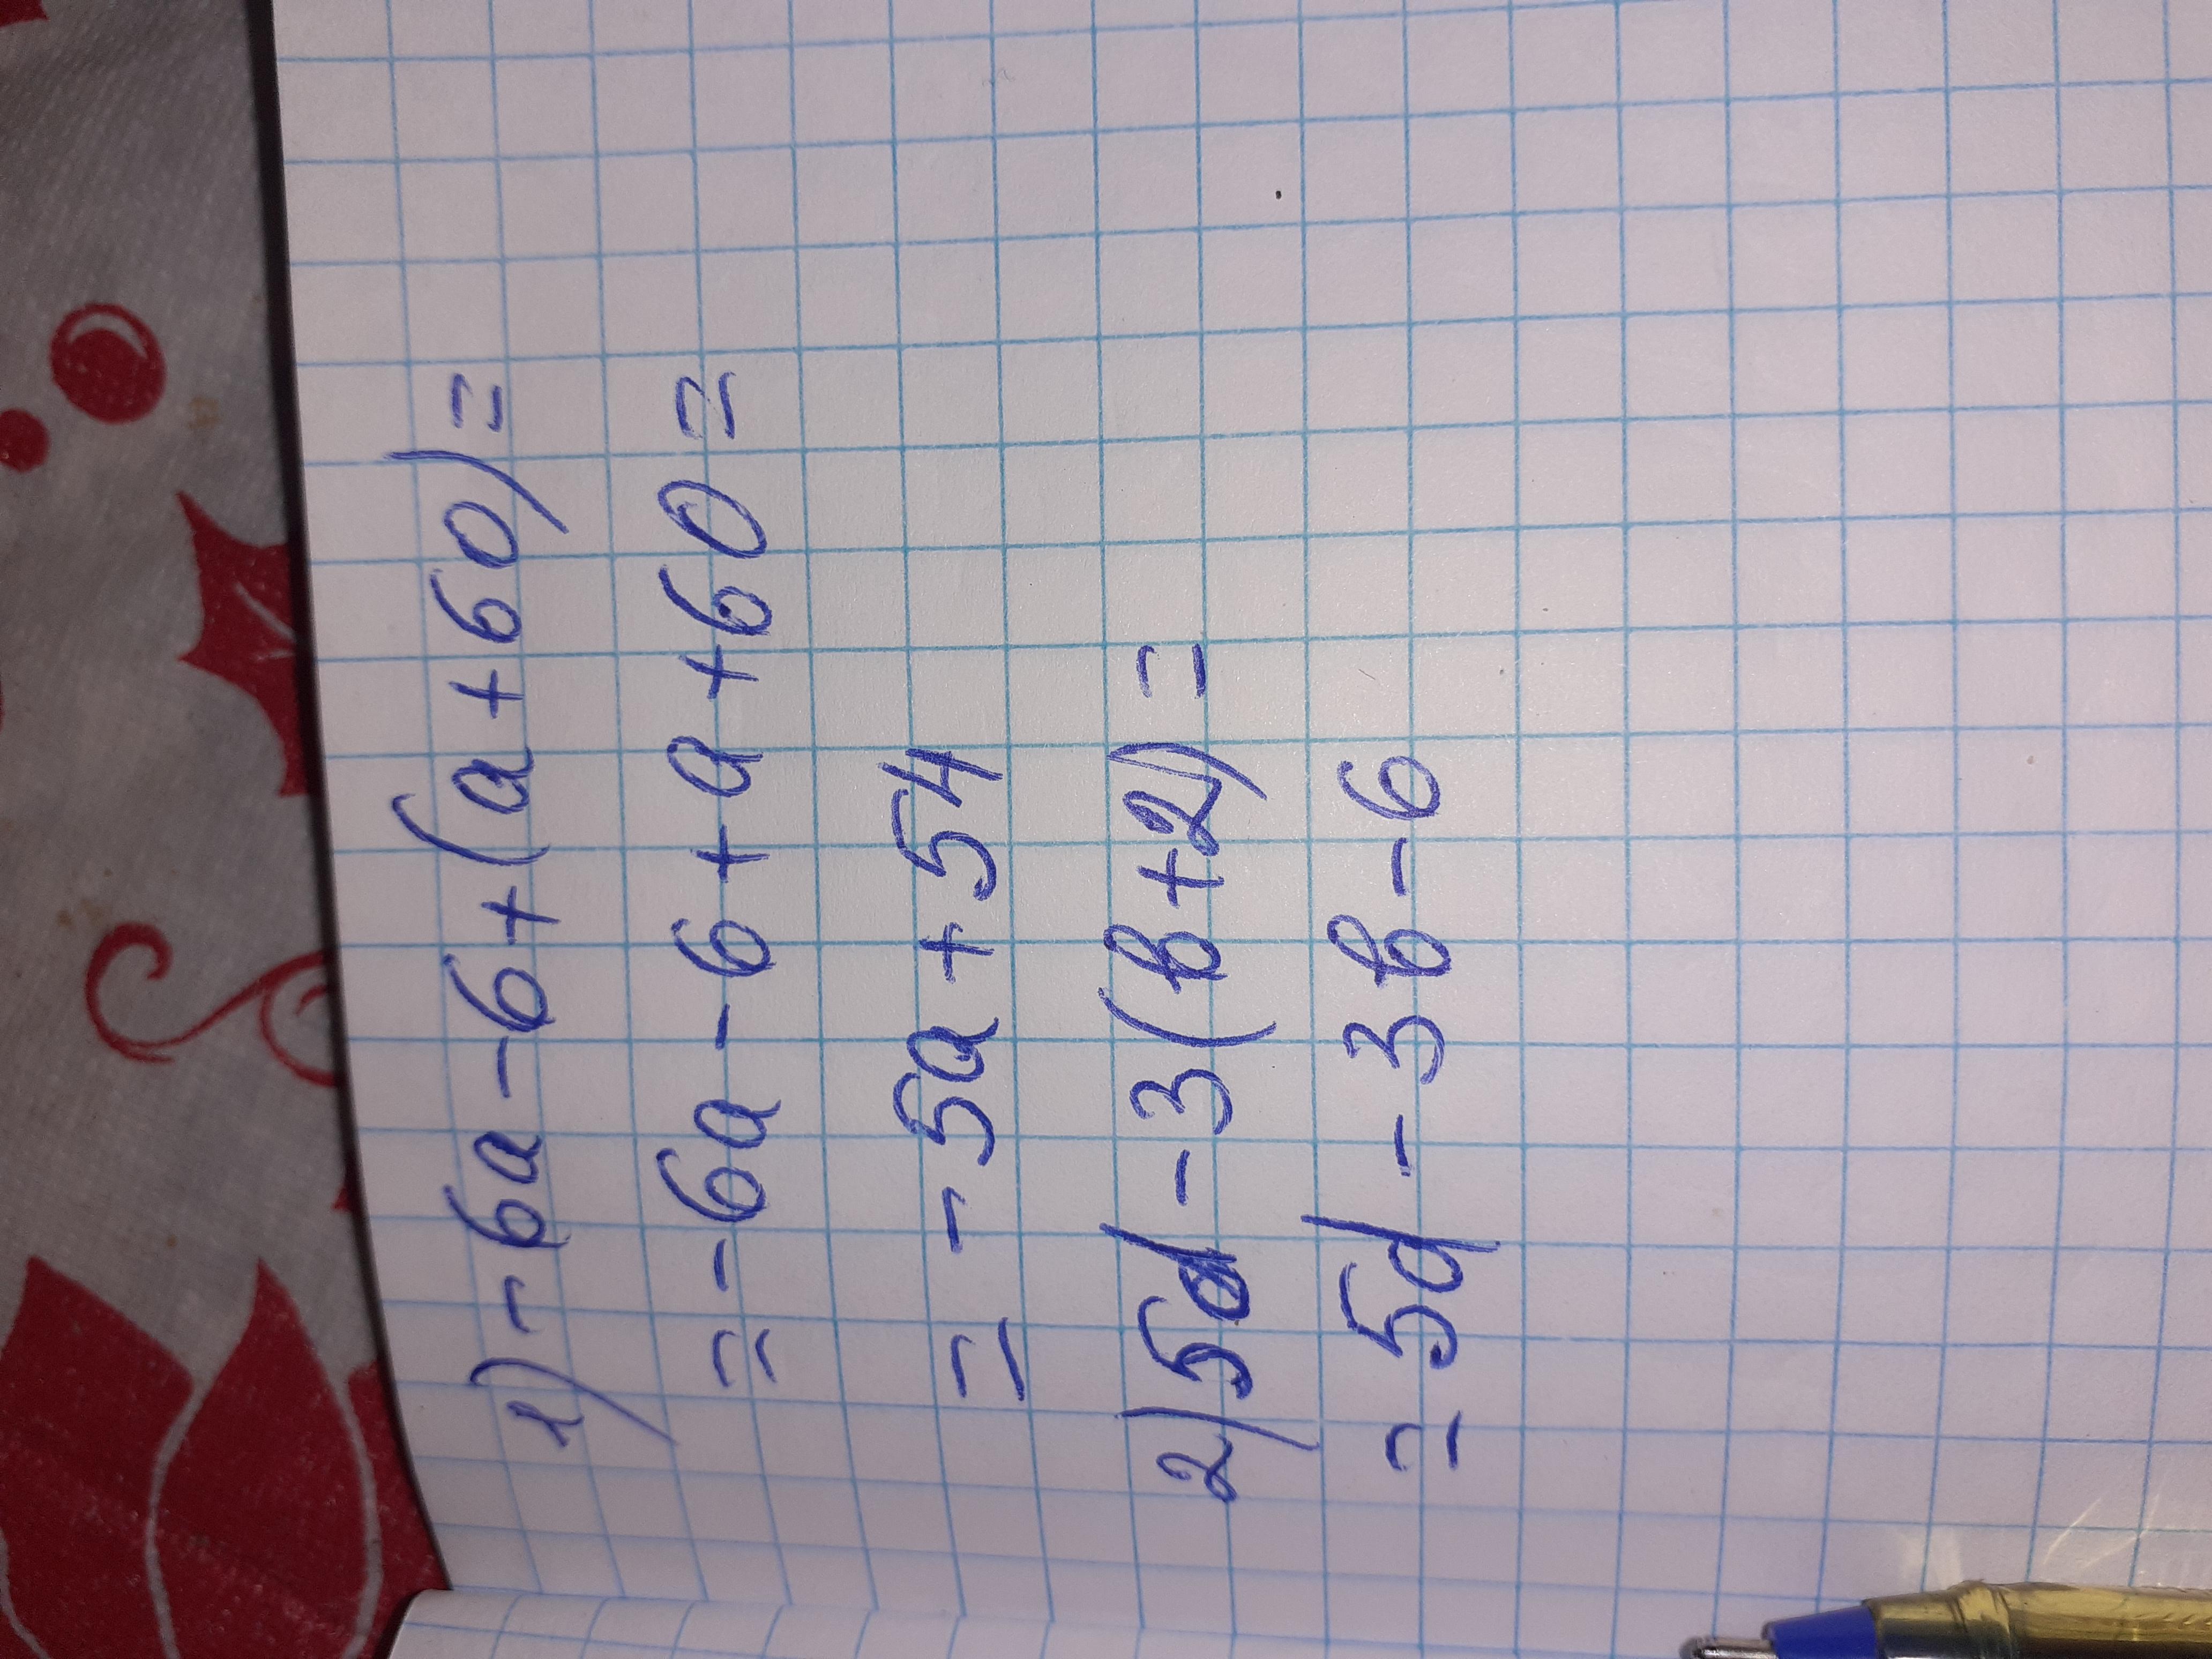 1) -6a-6+(a+60)=
=-6a-6+a+60=
=-5a+54
2) 5d-3(в+2)=
=5d-3в-6